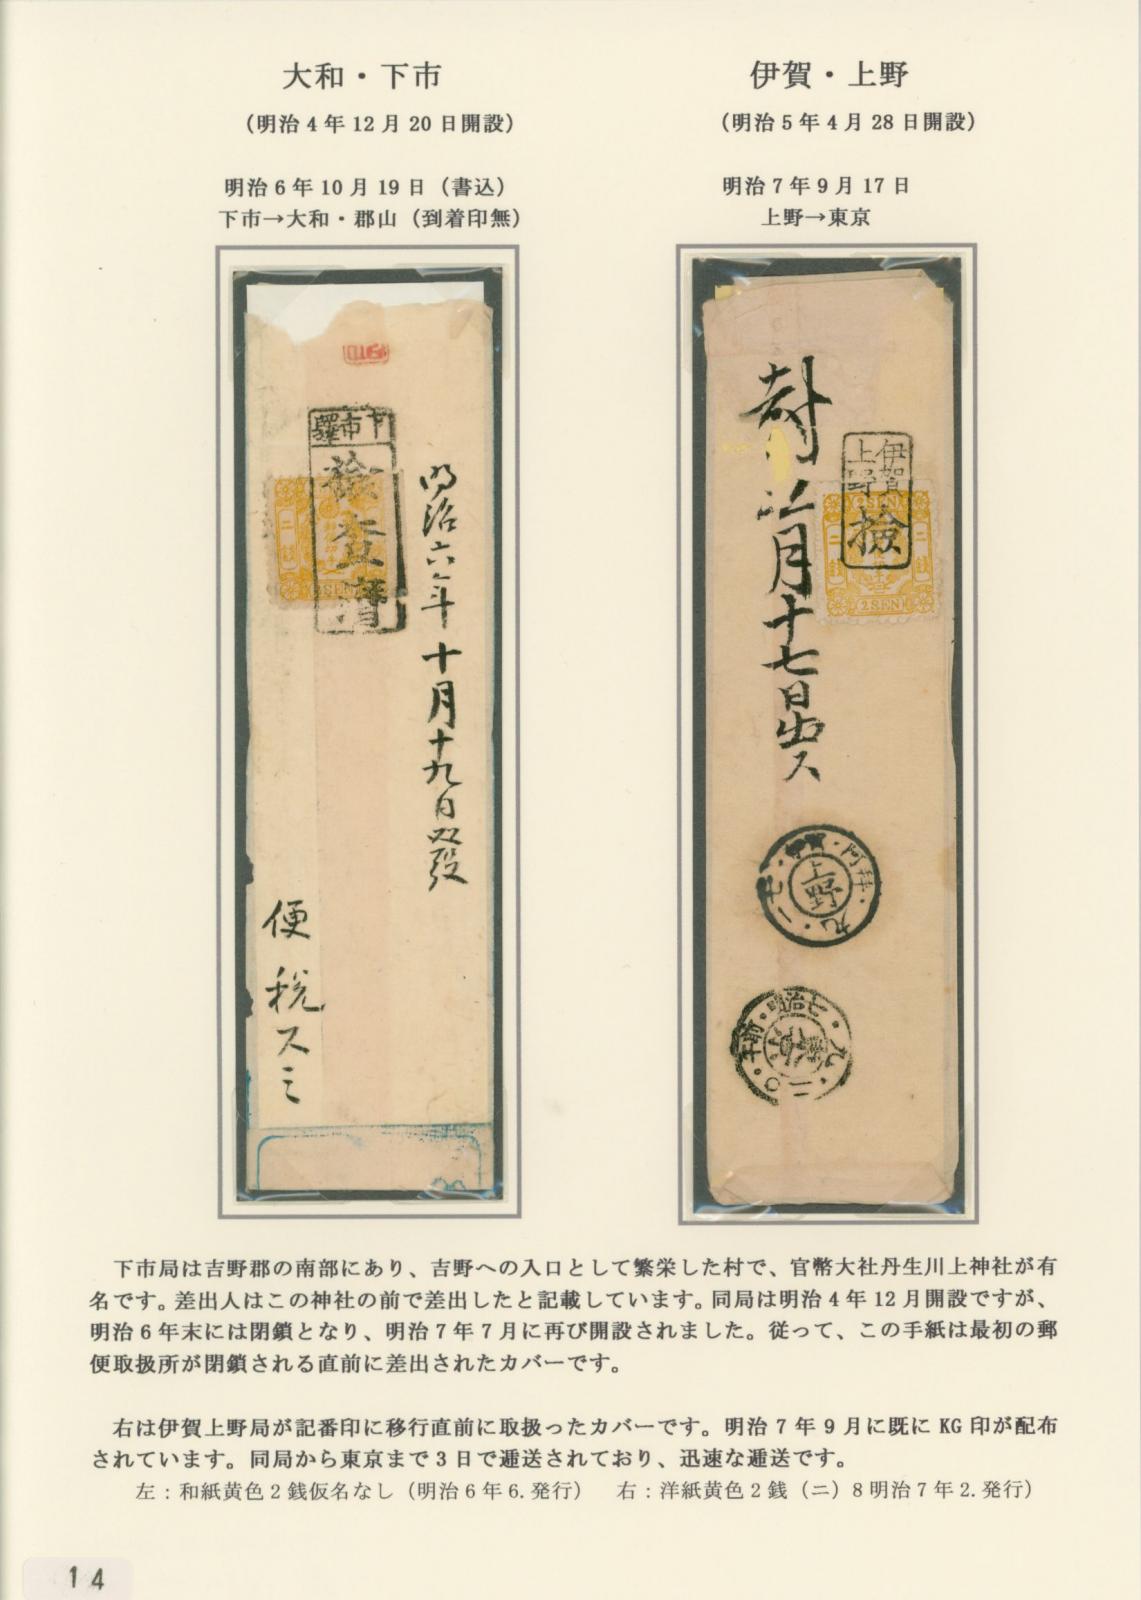 大和・下市
(明治4年12月20日開設)
明治6年10月19日(書込)
下市→大和・郡山(到着印無)
伊賀・上野
(明治5年4月28日開設)
明治7年9月17日
上野→東京
下市驛
檢査濟
二銭
2SEN
明治六年十月十九日發
便税スミ
伊賀
上野
檢
2SEN
二銭
二銭
(2SEN)
月十七日出ス
明治七・九・二〇・午前
下市局は吉野郡の南部にあり、吉野への入口として繁栄した村で、官幣大社丹生川上神社が有
名です。差出人はこの神社の前で差出したと記載しています。同局は明治4年12月開設ですが、
明治6年末には閉鎖となり、明治7年7月に再び開設されました。従って、この手紙は最初の郵
便取扱所が閉鎖される直前に差出されたカバーです。
右は伊賀上野局が記番印に移行直前に取扱ったカバーです。明治7年9月に既にKG印が配布
されています。同局から東京まで3日で逓送されており、迅速な逓送です。
左：和紙黄色2銭仮名なし(明治6年6.発行)　右：洋紙黄色2銭(ニ)8明治7年2.発行)
14